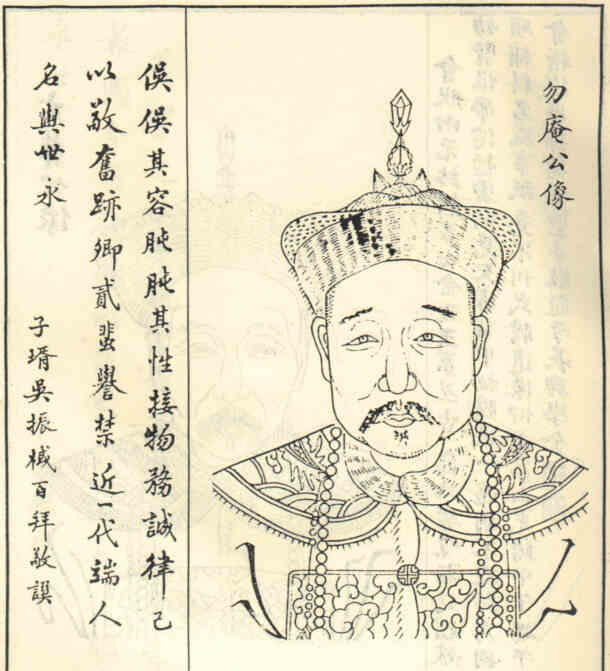 勿庵公像
俁俁其容肫肫其性接物務誠律己
以敬奮跡卿貳蜚譽禁近一代端人
名與世永
子壻吳振棫百拜敬譔